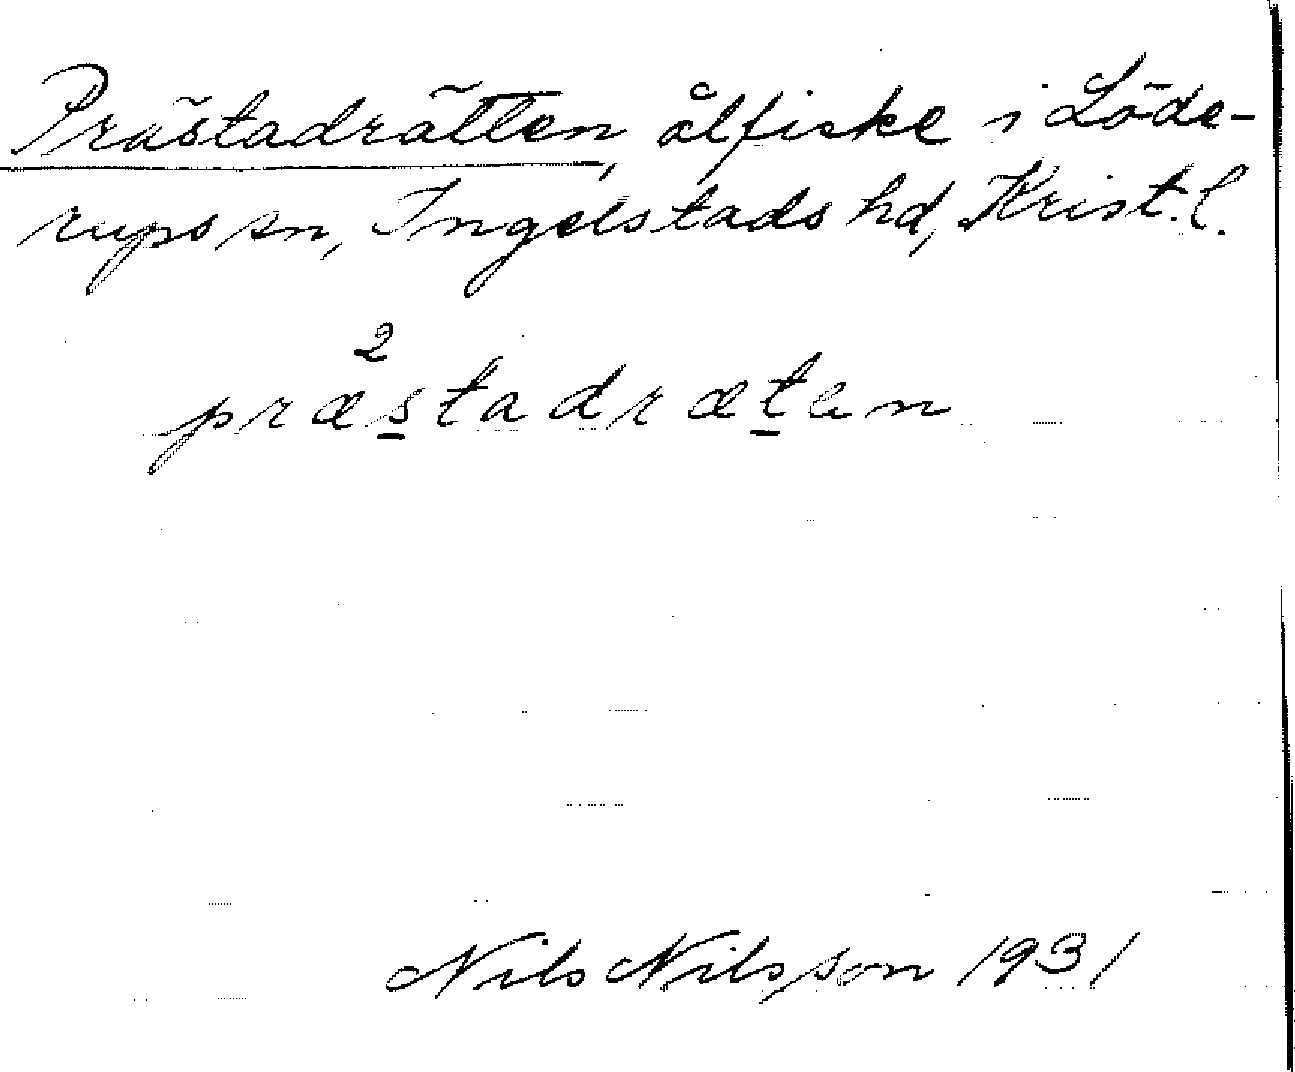 Prästadrätten, ålfiske i Löde-
rups sn, Ingelstads hd, Krist. l.
2
præstadræten
Nils Nilsson 1931